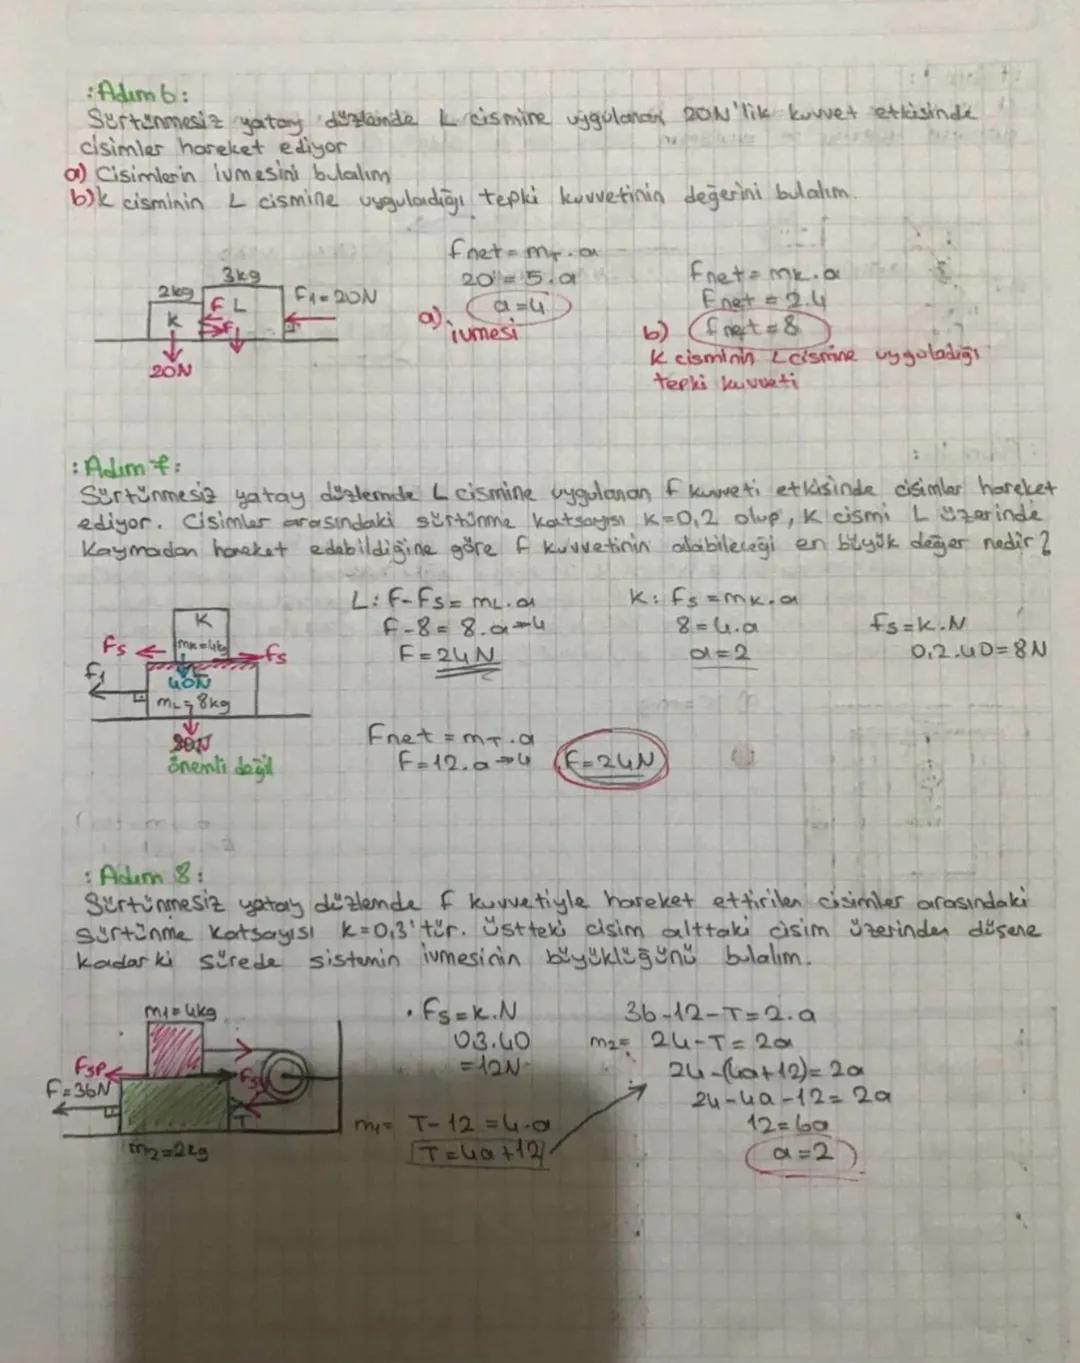 : Adım 6 :
Sürtünmesiz yatay düzlemde L cismine uygulanan 20N'lik kuvvet etkisinde
cisimler hareket ediyor
a) Cisimlerin ivmesini bulalım
b) K cisminin L cismine uyguladığı tepki kuvvetinin değerini bulalım.
2kg
3kg
K
F L
F
F1=20N
20N
Fnet = mT.a
20 = 5.a
a=4
a) ivmesi
Fnet = mK.a
Fnet = 2.4
b) Fnet = 8
K cisminin L cismine uyguladığı
tepki kuvveti
: Adım 7 :
Sürtünmesiz yatay düzlemde L cismine uygulanan F kuvveti etkisinde cisimler hareket
ediyor. Cisimler arasındaki sürtünme katsayısı K=0,2 olup, K cismi L üzerinde
Kaymadan hareket edebildiğine göre F kuvvetinin alabileceği en büyük değer nedir?
K
mK=4kg
Fs
Fs
F1
40N
mL=8kg
80N
önemli değil
L: F-Fs = mL.a
F-8 = 8.a→4
F=24N
K: Fs = mK.a
8=4.a
a=2
Fs=k.N
0,2.40=8N
Fnet = mT.a
F=12.a→4
F=24N
: Adım 8 :
Sürtünmesiz yatay düzlemde F kuvvetiyle hareket ettirilen cisimler arasındaki
sürtünme katsayısı k=0,3'tür. Üstteki cisim alttaki cisim üzerinden düşene
kadar ki sürede sistemin ivmesinin büyüklüğünü bulalım.
m1=4kg
Fsp
F=36N
T
m2=2kg
• Fs=k.N
03.40
=12N
m1= T-12=4.a
T=4a+12
36-12-T=2.a
m2= 24-T=2a
24-(4a+12)=2a
24-4a-12=2a
12=6a
a=2